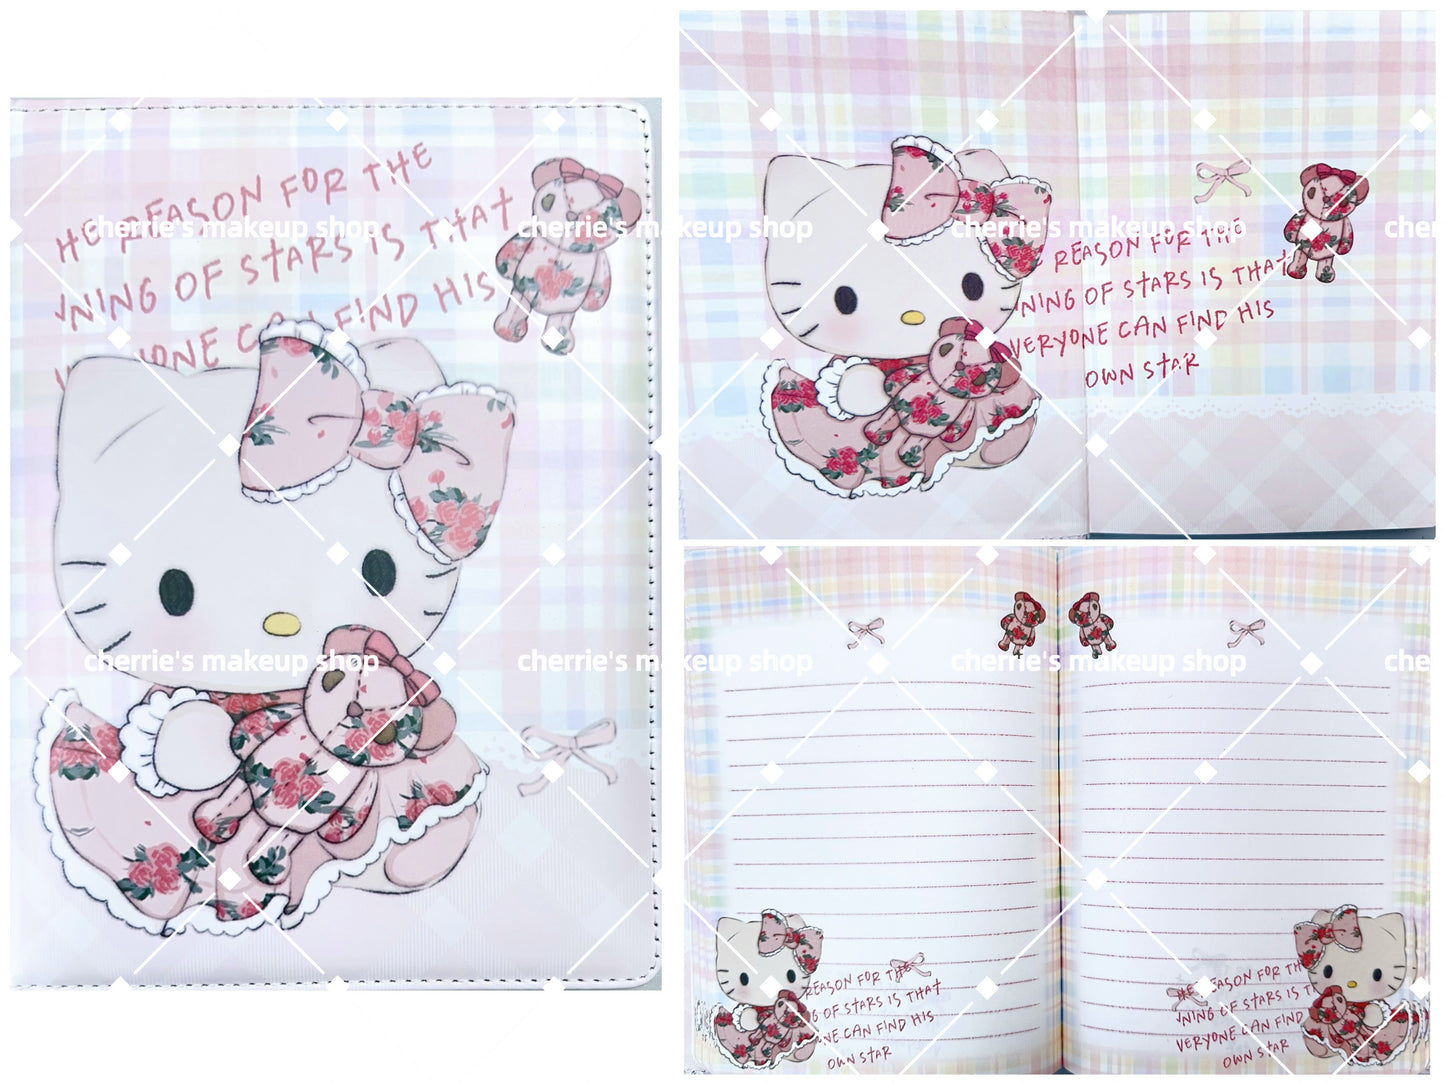 HE REASON FOR THE
NING OF STARS IS THAT
YONE CAN FIND HIS
cherrie's makeup shop
cherrie's makeup shop
cherrie's makeup shop
cher
REASON FOR THE
NING OF STARS IS THAT
VERYONE CAN FIND HIS
OWN STAR
cherrie's makeup shop
cherrie's makeup shop
cherrie's makeup shop
che
REASON FOR THE
G OF STARS IS THAT
NE CAN FIND HIS
OWN STAR
HE REASON FOR TH
NING OF STARS IS T
VERYONE CAN FIND
OWN STAR